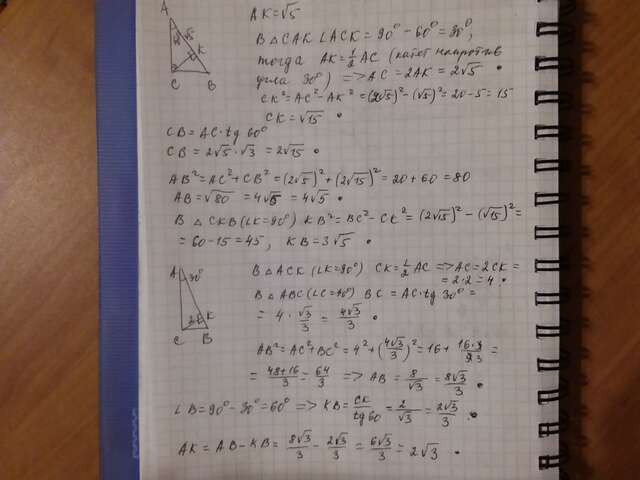 A
60
√5
K
C
B
AK = √5
В △ CAK ∠ACK = 90° - 60° = 30°,
тогда AK = 1/2 AC (катет напротив
угла 30°) => AC = 2AK = 2√5 .
CK² = AC² - AK² = (2√5)² - (√5)² = 20 - 5 = 15
CK = √15 .
CB = AC · tg 60°
CB = 2√5 · √3 = 2√15 .
AB² = AC² + CB² = (2√5)² + (2√15)² = 20 + 60 = 80
AB = √80 = 4√5 = 4√5 .
В △ CKB (∠K=90°) KB² = BC² - CK² = (2√15)² - (√15)² =
= 60 - 15 = 45, KB = 3√5 .
A
30°
K
C
B
В △ ACK (∠K=90°) CK = 1/2 AC => AC = 2CK =
= 2·2 = 4 .
В △ ABC (∠C=90°) BC = AC · tg 30° =
= 4 · √3/3 = 4√3/3 .
AB² = AC² + BC² = 4² + (4√3/3)² = 16 + 16·3/9 =
= 48+16/3 = 64/3 => AB = 8/√3 = 8√3/3 .
∠B = 90° - 30° = 60° => KB = CK/tg 60 = 2/√3 = 2√3/3 .
AK = AB - KB = 8√3/3 - 2√3/3 = 6√3/3 = 2√3 .